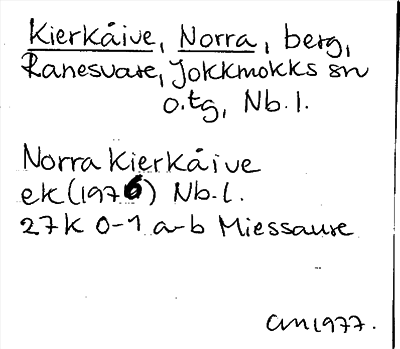 Kierkåive, Norra, berg,
Ranesvare, Jokkmokks sn
o.tg, Nb.l.
Norra Kierkåive
ek (1976) Nb.l.
27K 0-1 a-b Miessaure
1977.